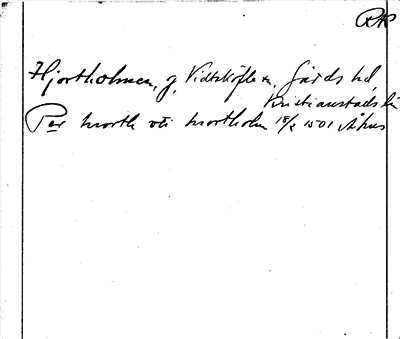 RAP
Hjortholmen, g, Vittskövle sn, Gärds hd,
Kristianstads län
Per hworth vti hwortholm 18/2 1501 Åhus